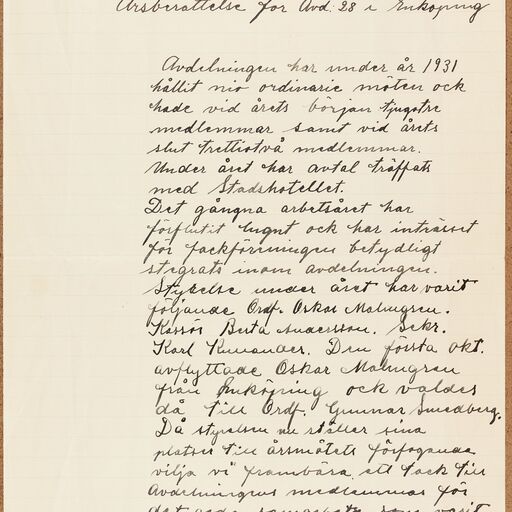 Årsberättelse för Avd. 28 i Enköping
Avdelningen har under år 1931
hållit nio ordinarie möten och
hade vid årets början tjugotre
medlemmar samt vid årets
slut trettiotvå medlemmar.
Under året har avtal träffats
med Stadshotellet.
Det gångna arbetsåret har
förflutit lugnt och har intresset
för fackföreningen betydligt
stegrats inom avdelningen.
Styrelse under året har varit
följande Ordf. Oskar Malmgren.
Kassör Berta Andersson. Sekr.
Karl. Den första okt.
avflyttade Oskar Malmgren
från Enköping och valdes
då till Ordf. Gunnar Smedberg.
Då styrelsen nu ställer sina
platser till årsmötets förfogande
vilja vi frambära ett tack till
Avdelningens medlemmar för
det goda samarbete som varit